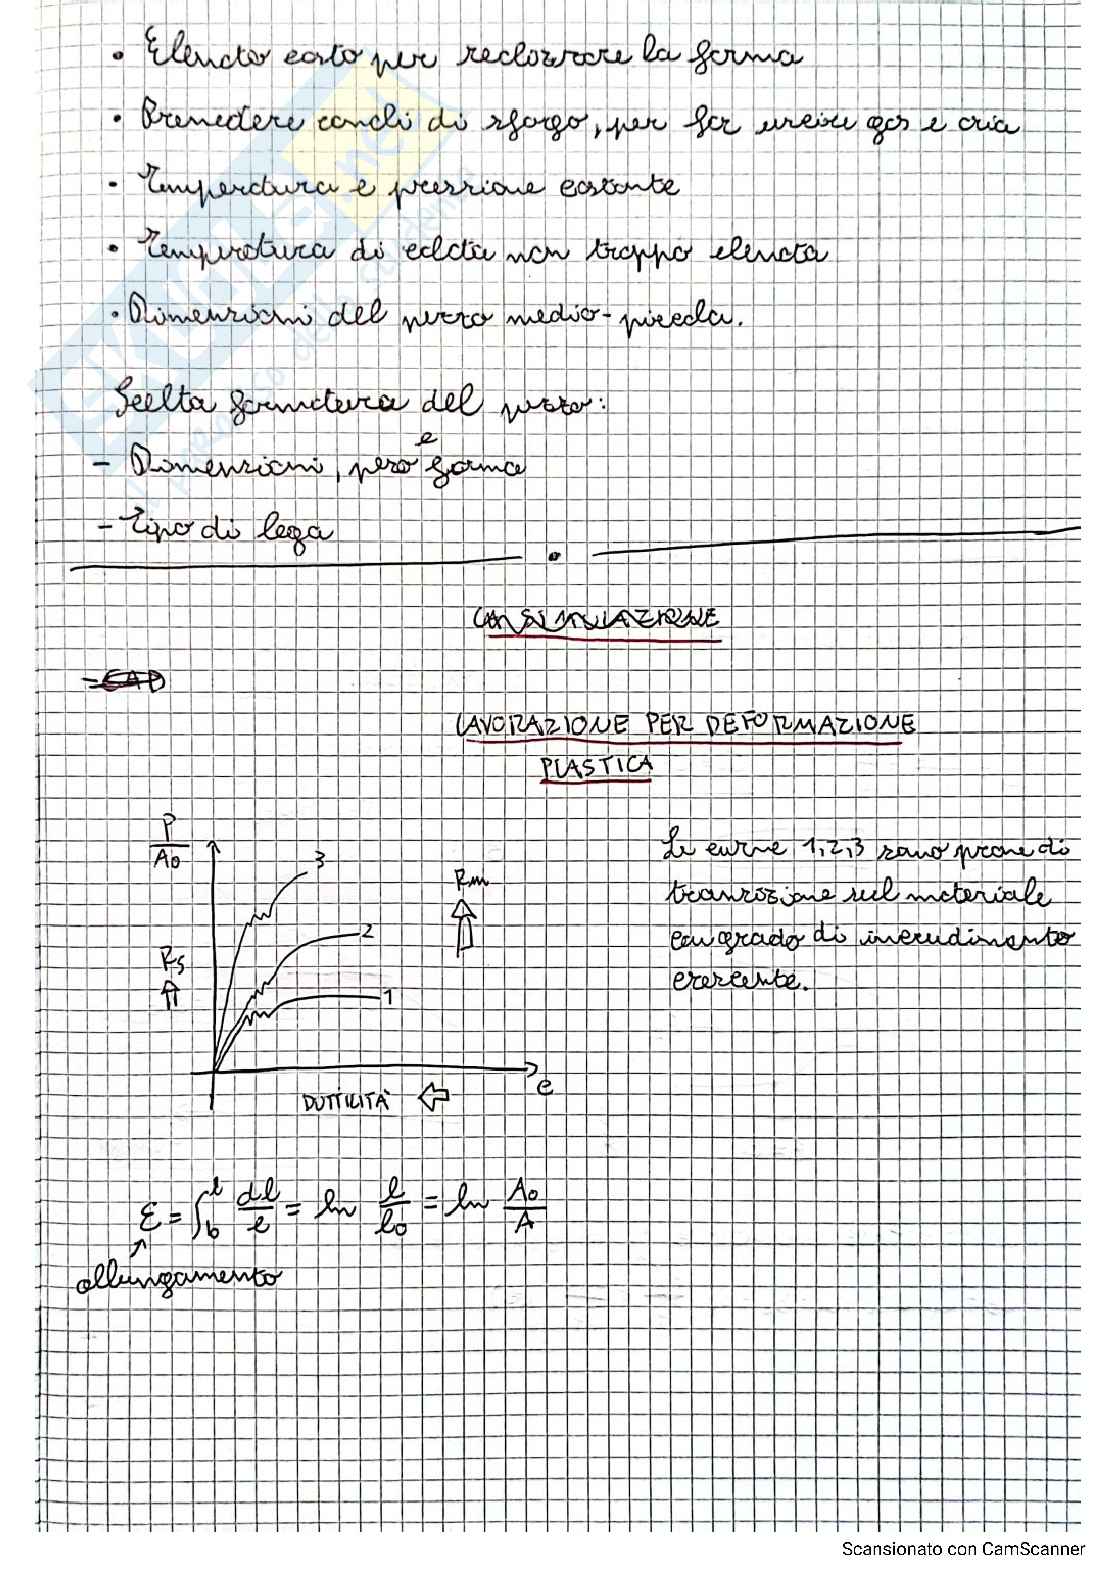 • Elevato costo per realizzare la forma
• Prevedere canali di sfogo, per far uscire gas e aria
• Temperatura e pressione costante
• Temperatura di colata non troppo elevata
• Dimensioni del pezzo medio-piccola.
Scelta formatura del pezzo:
- Dimensioni, peso e forma
- Tipo di lega
- CAD
LAVORAZIONE PER DEFORMAZIONE
PLASTICA
P/A0
3
Rm
2
Rs
1
e
DUTTILITÀ
Le curve 1,2,3 sono prove di
transizione sul materiale
con grado di incrudimento
crescente.
ε = ∫_{l0}^{l} dl/l = ln l/l0 = ln A0/A
allungamento
Scansionato con CamScanner